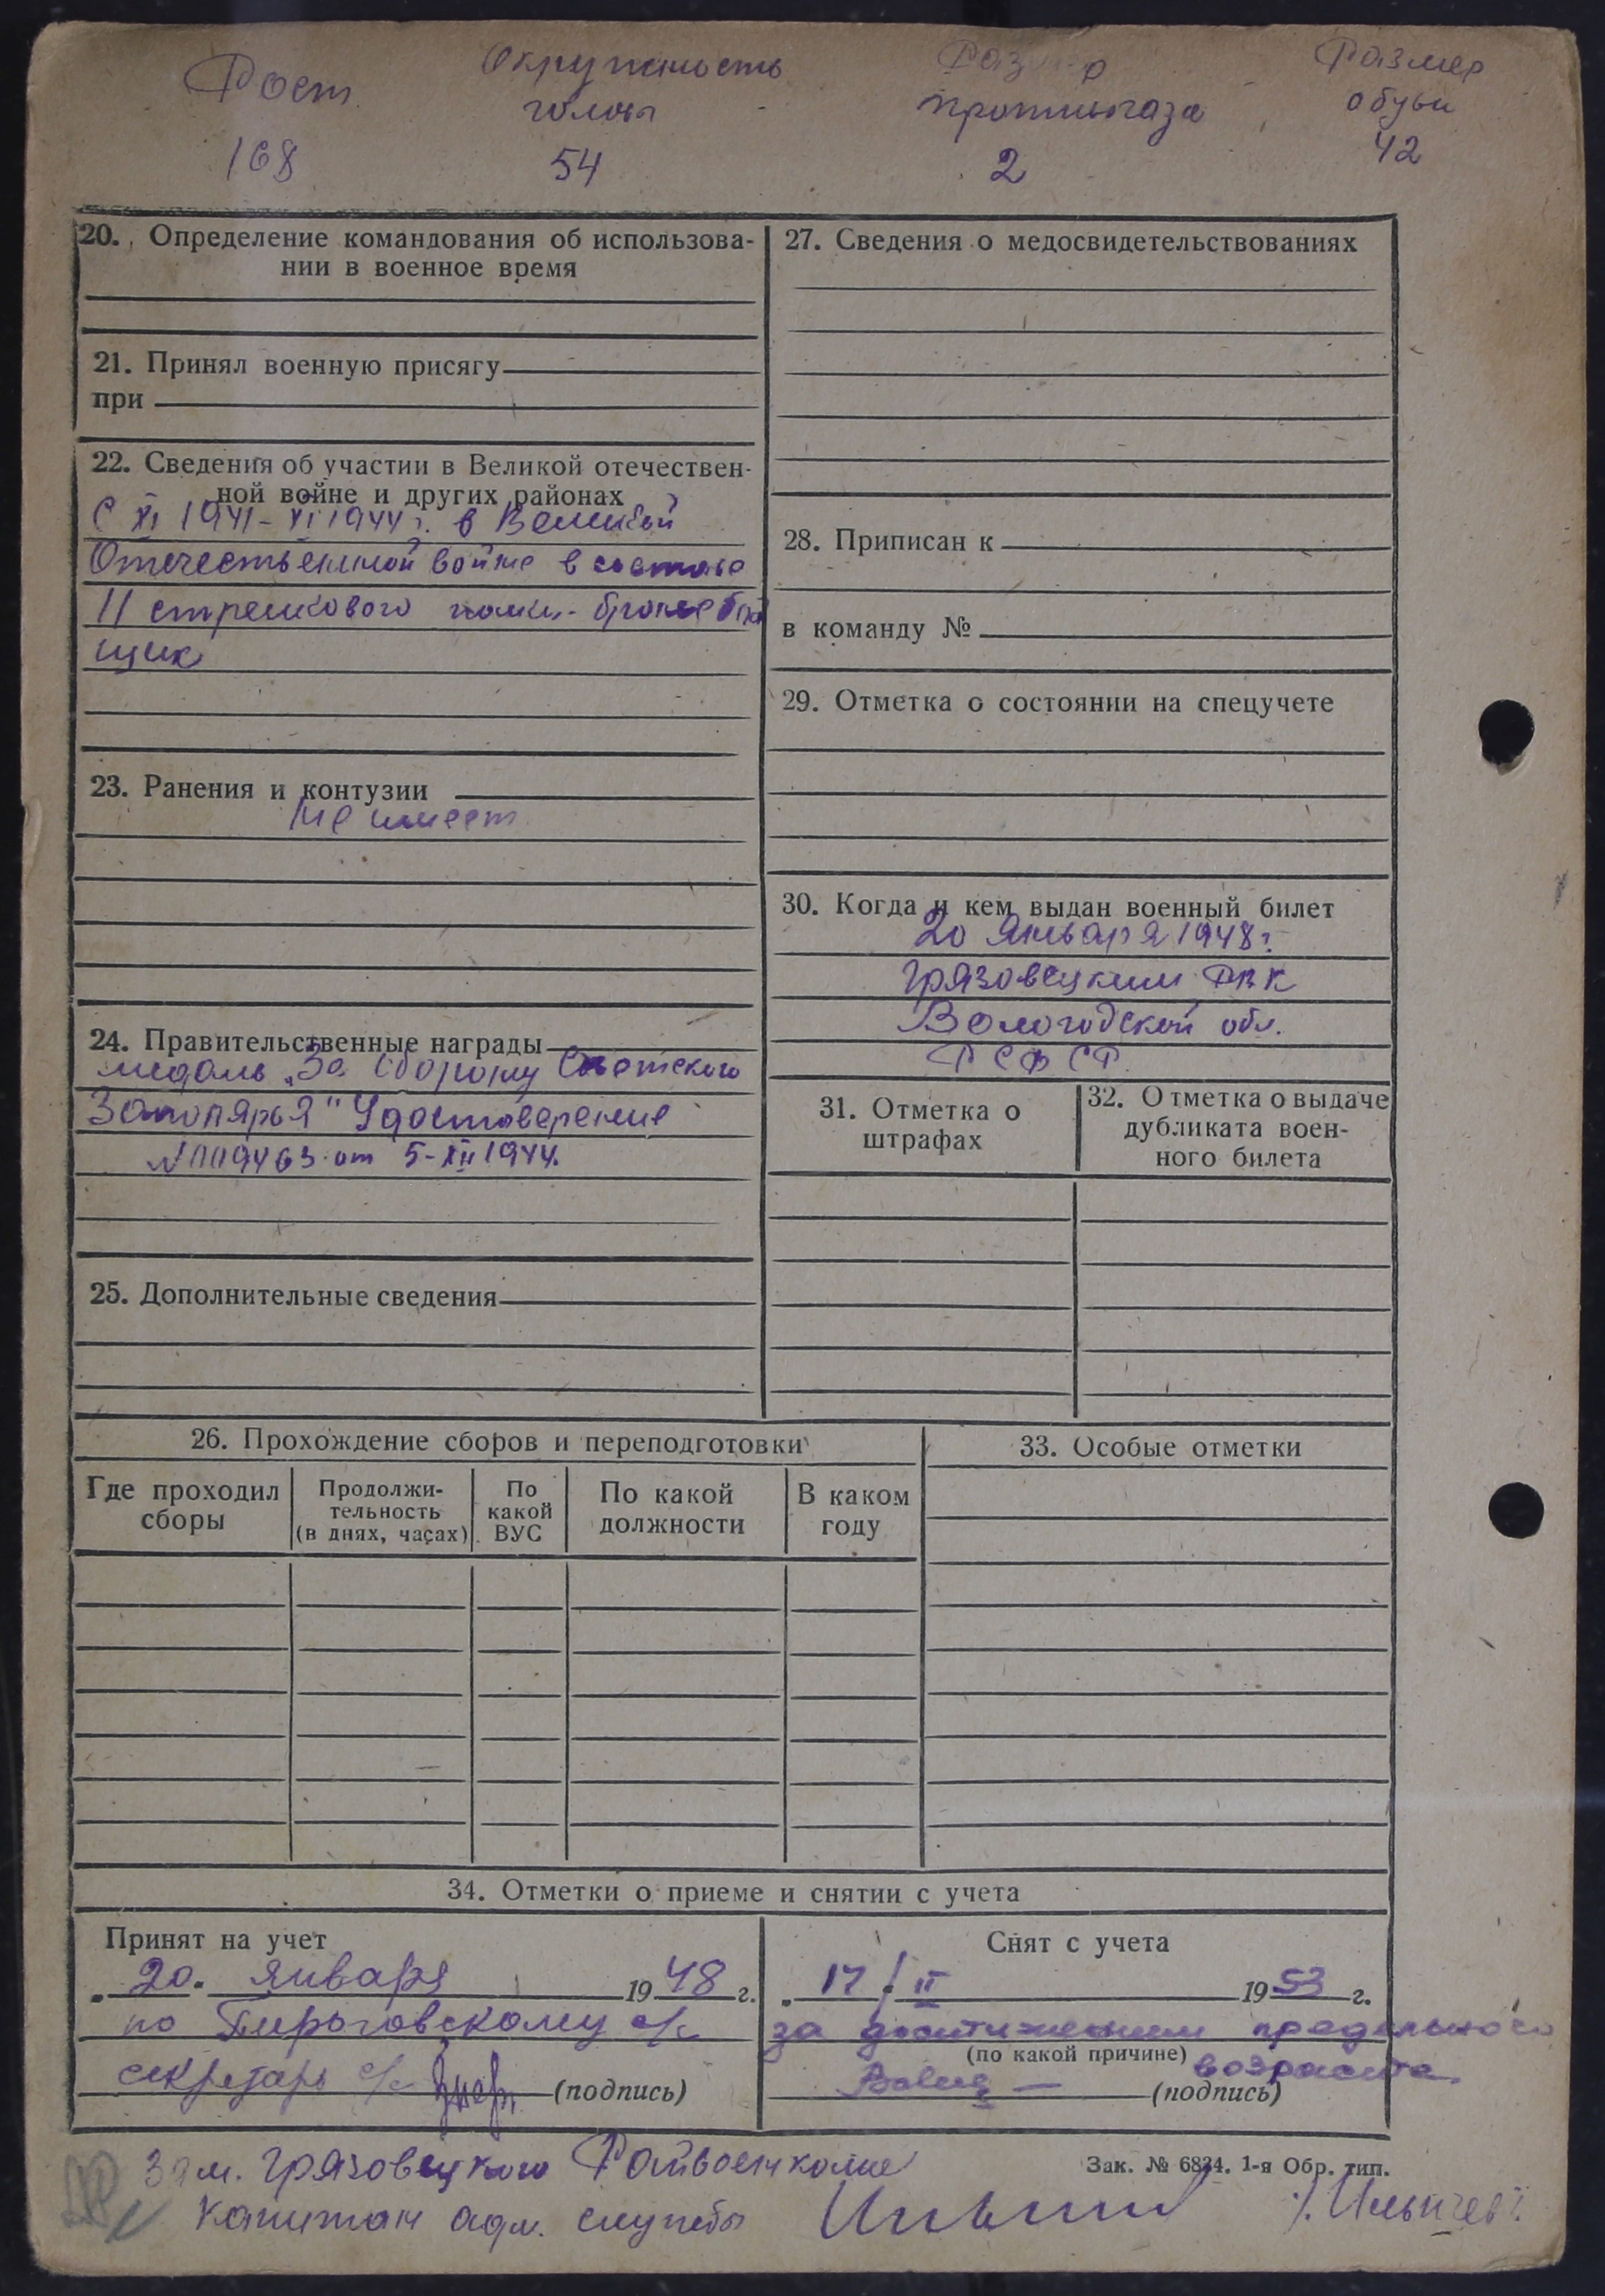 Рост
Окружность
головы
Размер
противогаза
Размер
обуви
168
54
2
42
20. Определение командования об использова-
нии в военное время
21. Принял военную присягу
при
22. Сведения об участии в Великой отечествен-
ной войне и других районах
С XI 1941 - XI 1944 г. в Великой
Отечественной войне в составе
11 стрелкового полка - бронебой
щик
23. Ранения и контузии
Не имеет
24. Правительственные награды
медаль „За оборону Советского
Заполярья" Удостоверение
№ 009463 от 5-XII 1944.
25. Дополнительные сведения
27. Сведения о медосвидетельствованиях
28. Приписан к
в команду №
29. Отметка о состоянии на спецучете
30. Когда и кем выдан военный билет
20 Января 1948 г.
Грязовецким РВК
Вологодской обл.
РСФСР.
31. Отметка о
штрафах
32. Отметка о выдаче
дубликата воен-
ного билета
26. Прохождение сборов и переподготовки
Где проходил
сборы
Продолжи-
тельность
(в днях, часах)
По
какой
ВУС
По какой
должности
В каком
году
33. Особые отметки
34. Отметки о приеме и снятии с учета
Принят на учет
„20. января 1948 г.
по с/с
секретарь с/с (подпись)
Снят с учета
„17/II 1953 г.
за достижением предельного
(по какой причине) возраста.
(подпись)
Зам. Грязовецкого Райвоенкома
капитан адм. службы
/Ильичев/.
Зак. № 6834. 1-я Обр. тип.